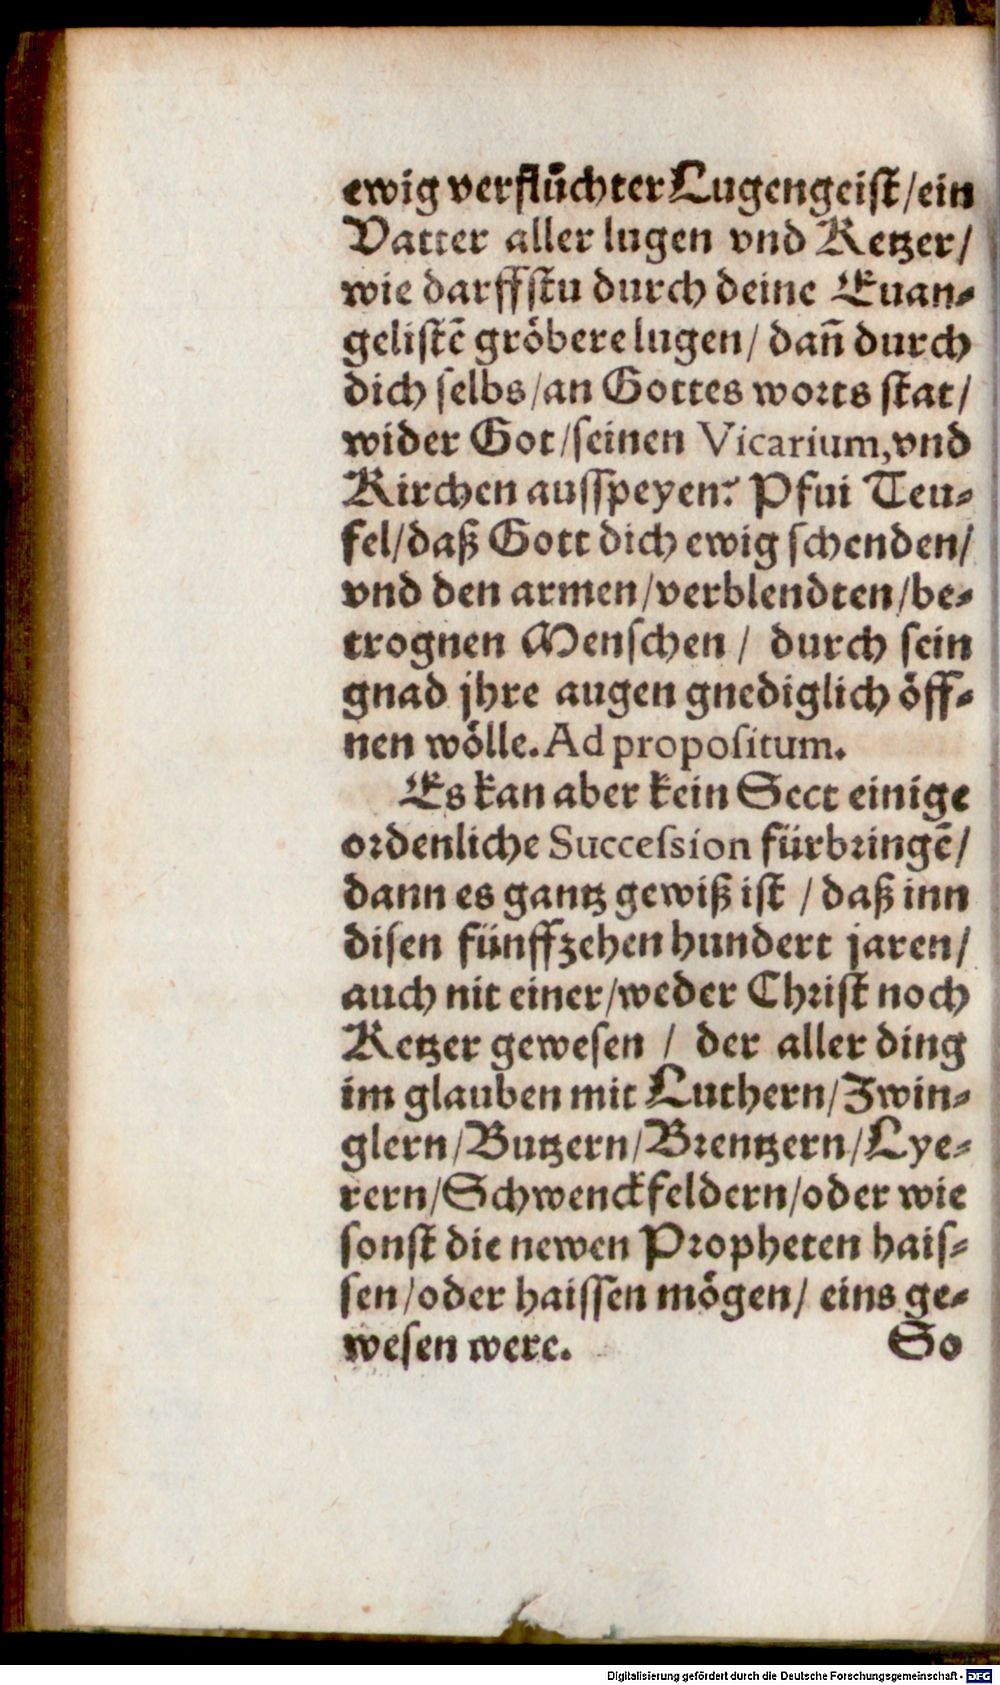 ewig verflůchter Lugengeist/ein
Vatter aller lugen vnd Ketzer/
wie darffstu durch deine Euan-
gelistē gröbere lugen/ dañ durch
dich selbs/an Gottes worts stat/
wider Got/seinen Vicarium, vnd
Kirchen ausspeyen? Pfui Teu-
fel/daß Gott dich ewig schenden/
vnd den armen/verblendten/be-
trognen Menschen/ durch sein
gnad jhre augen gnediglich öff-
nen wölle. Ad propositum.
Es kan aber kein Sect einige
ordenliche Succession fürbringē/
dann es gantz gewiß ist / daß inn
disen fünffzehen hundert jaren/
auch nit einer/weder Christ noch
Ketzer gewesen / der aller ding
im glauben mit Luthern/Zwin-
glern/Butzern/Brentzern/Lye-
rern/Schwenckfeldern/oder wie
sonst die newen Propheten hais-
sen/oder haissen mögen/ eins ge-
wesen were. So
Digitalisierung gefördert durch die Deutsche Forschungsgemeinschaft - DFG